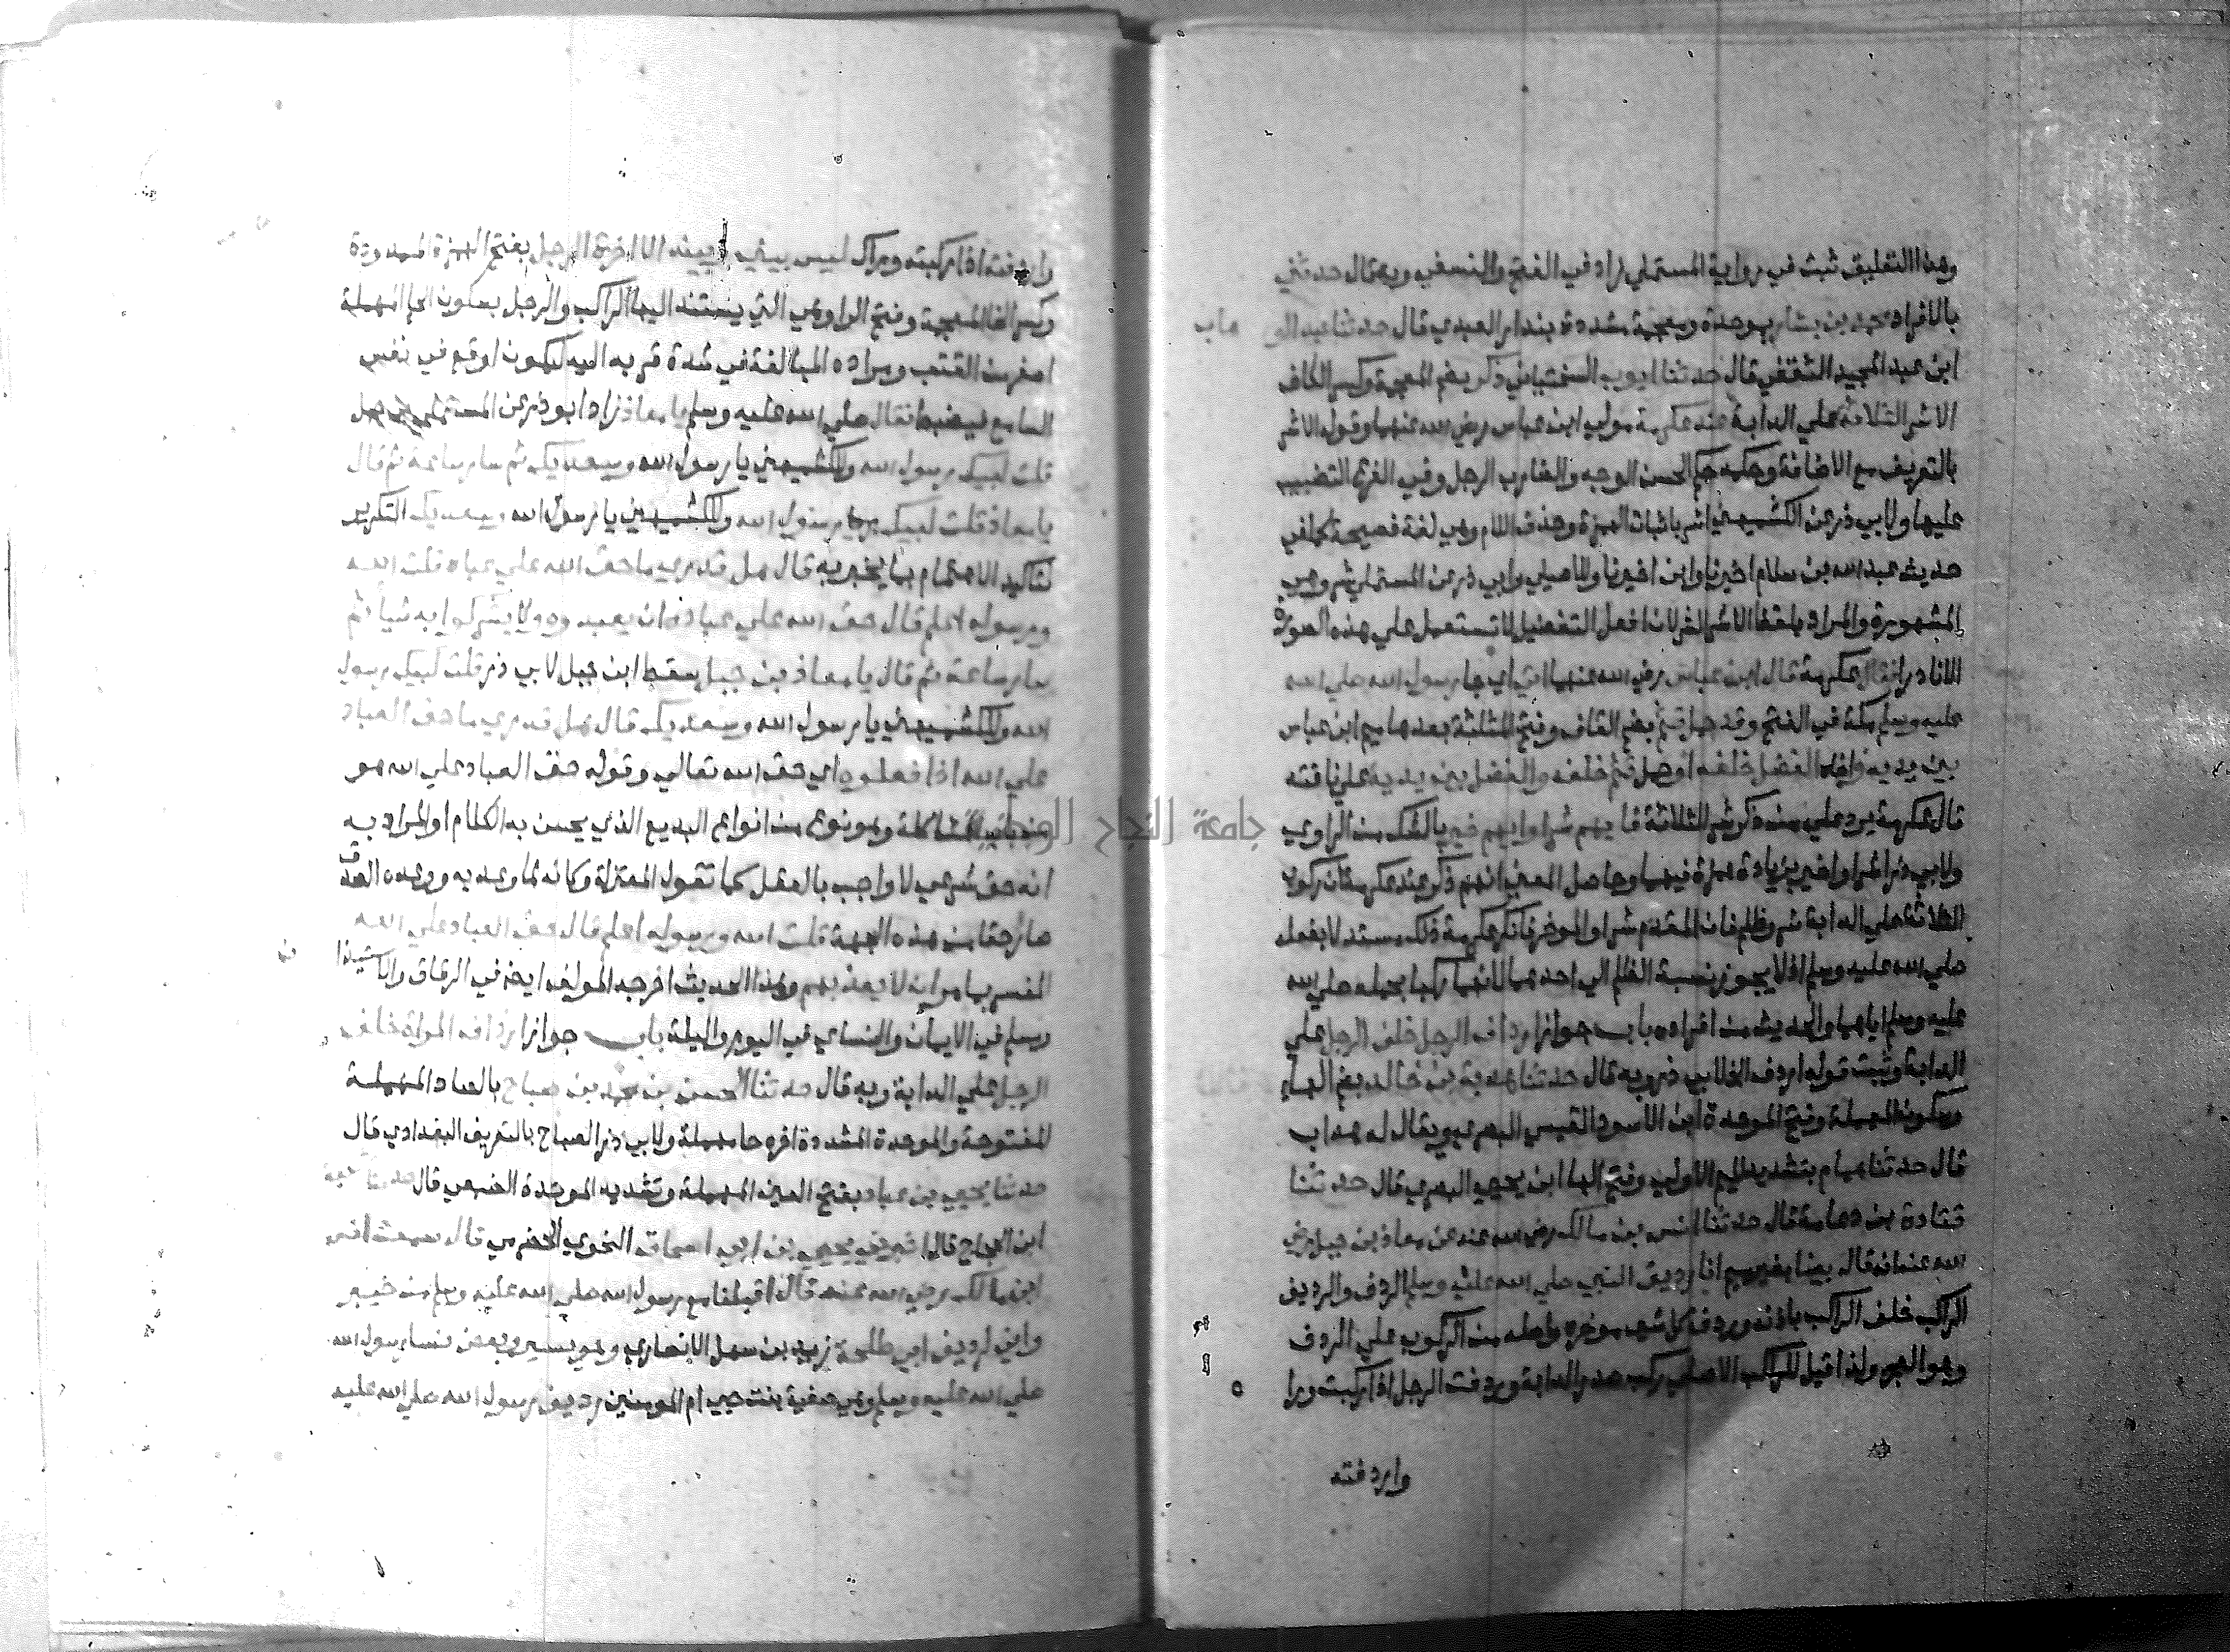 وهذا التعليق ثبت في رواية المستملي زاد في الفتح والنسفي وبه قال حدثني
بالافراد محمد بن بشار بموحدة ومعجمة مشددة بندار العبدي قال حدثنا عبد الو هاب
ابن عبد المجيد الثقفي قال حدثنا ايوب السختياني ذكر بضم المعجمة وكسر الكاف
الاشر الثلاثة علي الدابة عند عكرمة مولي ابن عباس رضي الله عنهما وقوله الاشر
بالتعريف مع الاضافة وحكمه حكم الحسن الوجه والضارب الرجل وفي الفرع التضبيب
عليها ولابي ذر عن الكشميهني اشر باثبات الهمزة وحذف اللام وهي لغة فصيحة كما في
حديث عبد الله بن سلام اخيرنا وابن اخيرنا وللاصيلي وابي ذر عن المستملي شر وهي
المشهورة والمراد بلفظ الاشر الشر لان افعل التفضيل لا تستعمل علي هذه الصورة
الا نادرا فقال عكرمة قال ابن عباس رضي الله عنهما اتي اي جا رسول الله صلي الله
عليه وسلم مكة في الفتح وقد حمل قثم بضم القاف وفتح المثلثة بعدها ميم ابن عباس
بين يديه واخاه الفضل خلفه او حمل قثم خلفه والفضل بين يديه علي ناقته
قال عكرمة يرد علي من ذكر شر الثلاثة فايهم شر او ايهم خير بالشك من الراوي
ولابي ذر اشر او اخير بزيادة همزة فيهما وحاصل المعني انهم ذكر عند عكرمة ان ركوب
الثلاثة علي الدابة شر وظلم فان المقدم شر او الموخر فانكر عكرمة ذلك مستدلا بفعله
صلي الله عليه وسلم اذ لا يجوز نسبة الظلم الي احدهما لانهما ركبا بحمله صلي الله
عليه وسلم اياهما والحديث من افراده باب جواز ارداف الرجل خلف الرجل علي
الدابة وثبت قوله ارداف الخ لابي ذر وبه قال حدثنا هدبة بن خالد بضم الهاء
وسكون المهملة وفتح الموحدة ابن الاسود القيسي البصري ويقال له هداب
قال حدثنا همام بتشديد الميم الاولي وفتح الها ابن يحيي البصري قال حدثنا
قتادة بن دعامة قال حدثنا انس بن مالك رضي الله عنه عن معاذ بن جبل رضي
الله عنه انه قال بينا بغير ميم انا رديف النبي صلي الله عليه وسلم الردف والرديف
الراكب خلف الراكب باذنه وردف كل شيء موخره واصله من الركوب علي الردف
وهو العجز ولذا قيل للراكب الاصلي ركب صدر الدابة وردفت الرجل اذا ركبت ورا
واردفته
واردفته اذا اركبته وراك ليس بيني وبينه الا اخرة الرجل بفتح الهمزة الممدودة
وكسر الخا المعجمة وفتح الرا وهي التي يستند اليها الراكب والرجل بسكون الحا المهملة
اصغر من القتب ومراده المبالغة في شدة قربه اليه ليكون اوقع في نفس
السامع فيضبط فقال صلي الله عليه وسلم يا معاذ زاد ابو ذر عن المستملي بن جبل
قلت لبيك رسول الله وللكشميهني يا رسول الله وسعديك ثم سار ساعة ثم قال
يا معاذ قلت لبيك رسول الله وللكشميهني يا رسول الله وسعديك التكرير
لتاكيد الاهتمام بما يخبر به قال هل تدري ما حق الله علي عباده قلت الله
ورسوله اعلم قال حق الله علي عباده ان يعبدوه ولا يشركوا به شيا ثم
سار ساعة ثم قال يا معاذ بن جبل سقط ابن جبل لابي ذر قلت لبيك رسول
الله وللكشميهني يا رسول الله وسعديك قال هل تدري ما حق العباد
علي الله اذا فعلوه اي حق الله تعالي وقوله حق العباد علي الله هو
من باب المشاكلة وهو نوع من انواع البديع الذي يحسن به الكلام او المراد به
انه حق شرعي لا واجب بالعقل كما تقول المعتزلة وكانه لما وعد به ووعده الصدق
صار حقا من هذه الجهة قلت الله ورسوله اعلم قال حق العباد علي الله
المفسر بما مر ان لا يعذبهم وهذا الحديث اخرجه المولف ايضا في الرقاق والاستيذان
ومسلم في الايمان والنساي في اليوم والليلة باب جواز ارداف المراة خلف
الرجل علي الدابة وبه قال حدثنا الحسن بن محمد بن صباح بالصاد المهملة
المفتوحة والموحدة المشددة اخره حا مهملة ولابي ذر الصباح بالتعريف البغدادي قال
حدثنا يحيي بن عباد بفتح العين المهملة وتشديد الموحدة الضبعي قال حدثنا شعبة
ابن الحجاج قال اخبرني يحيي بن ابي اسحاق النحوي الحضرمي قال سمعت انس
ابن مالك رضي الله عنه قال اقبلنا مع رسول الله صلي الله عليه وسلم من خيبر
واني لرديف ابي طلحة زيد بن سهل الانصاري وهو يسير وبعض نسا رسول الله
صلي الله عليه وسلم وهي صفية بنت حيي ام المومنين رديف رسول الله صلي الله عليه
جامعة النجاح الوطنية